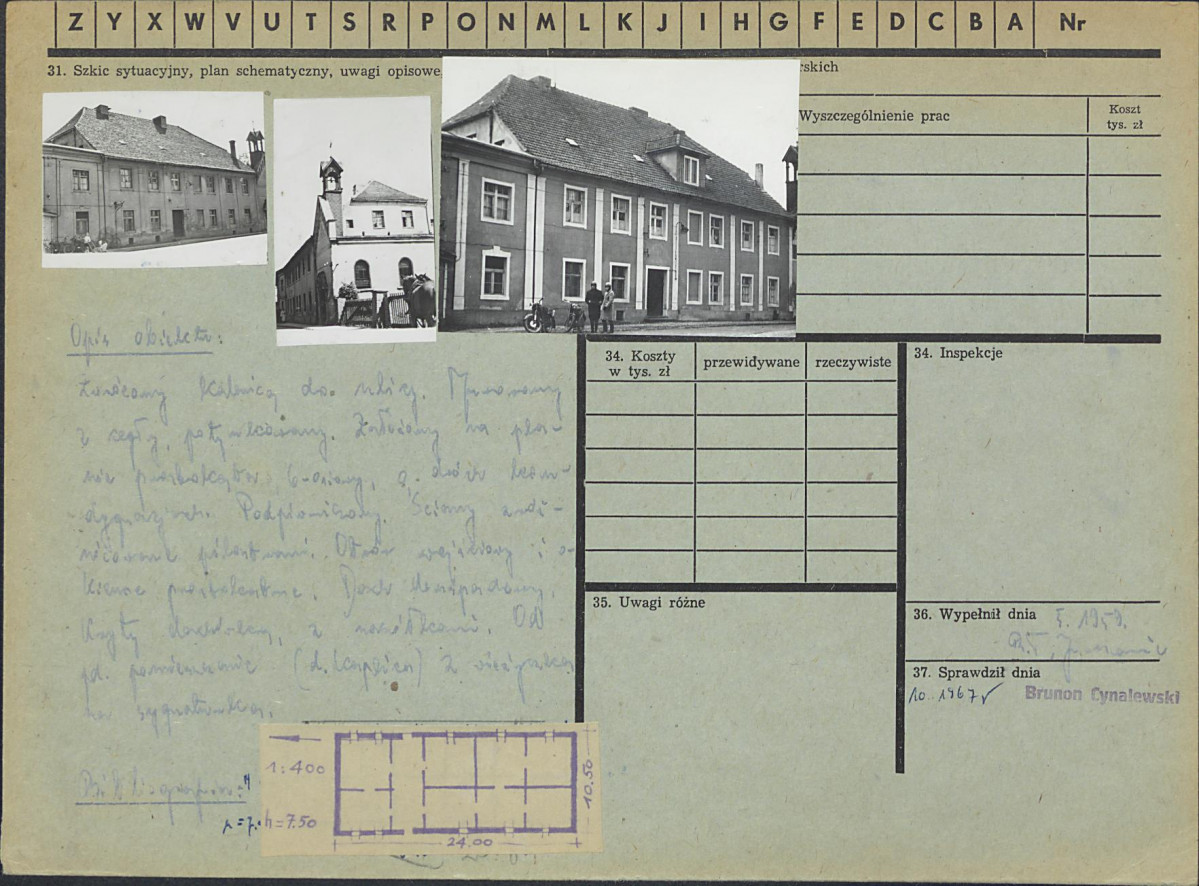 Z Y X W V U T S R P O N M L K J I H G F E D C B A Nr
31. Szkic sytuacyjny, plan schematyczny, uwagi opisowe
rskich
Wyszczególnienie prac
Koszt
tys. zł
Opis obiektu:
Zwrócony kalenicą do ulicy. Murowany
z cegły, potynkowany. Założony na pla-
nie prostokąta, 6-osiowy, o dwóch kon-
dygnacjach. Podpiwniczony. Ściany
pilastrami. Otwór wejściowy i o-
kienne prostokątne. Dach
Kryty dachówką, z Od
pd. pomieszczenie (d. kaplica) z wieżyczką
na sygnaturkę.
Bibliografia:
34. Koszty
w tys. zł
przewidywane
rzeczywiste
34. Inspekcje
35. Uwagi różne
36. Wypełnił dnia 5. 1959.
37. Sprawdził dnia
10. 1967
Brunon Cynalewski
1:400
h=7.50
24.00
10.50